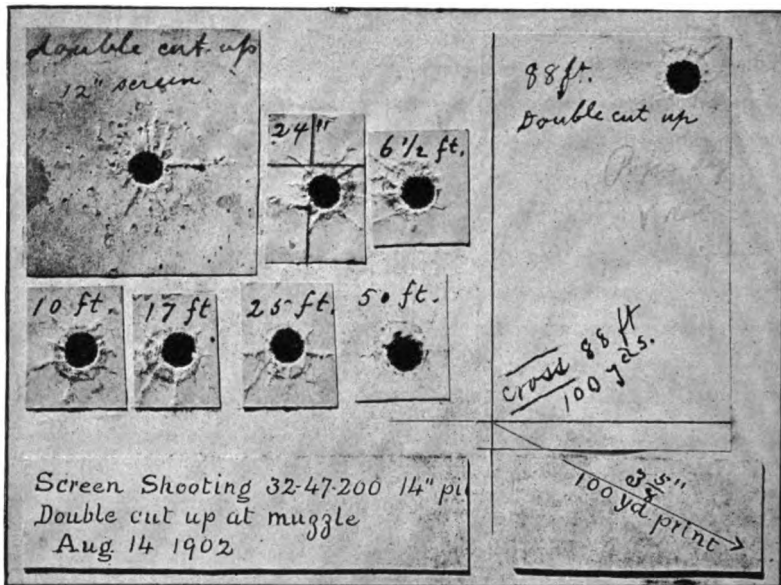 double cut up
12" screen
24"
6 1/2 ft.
10 ft.
17 ft
25 ft.
50 ft.
88 ft.
Double cut up
cross 88 ft
100 yds.
Screen Shooting 32-47-200 14" pi
Double cut up at muzzle
Aug 14 1902
3 5/8"
100 yd print